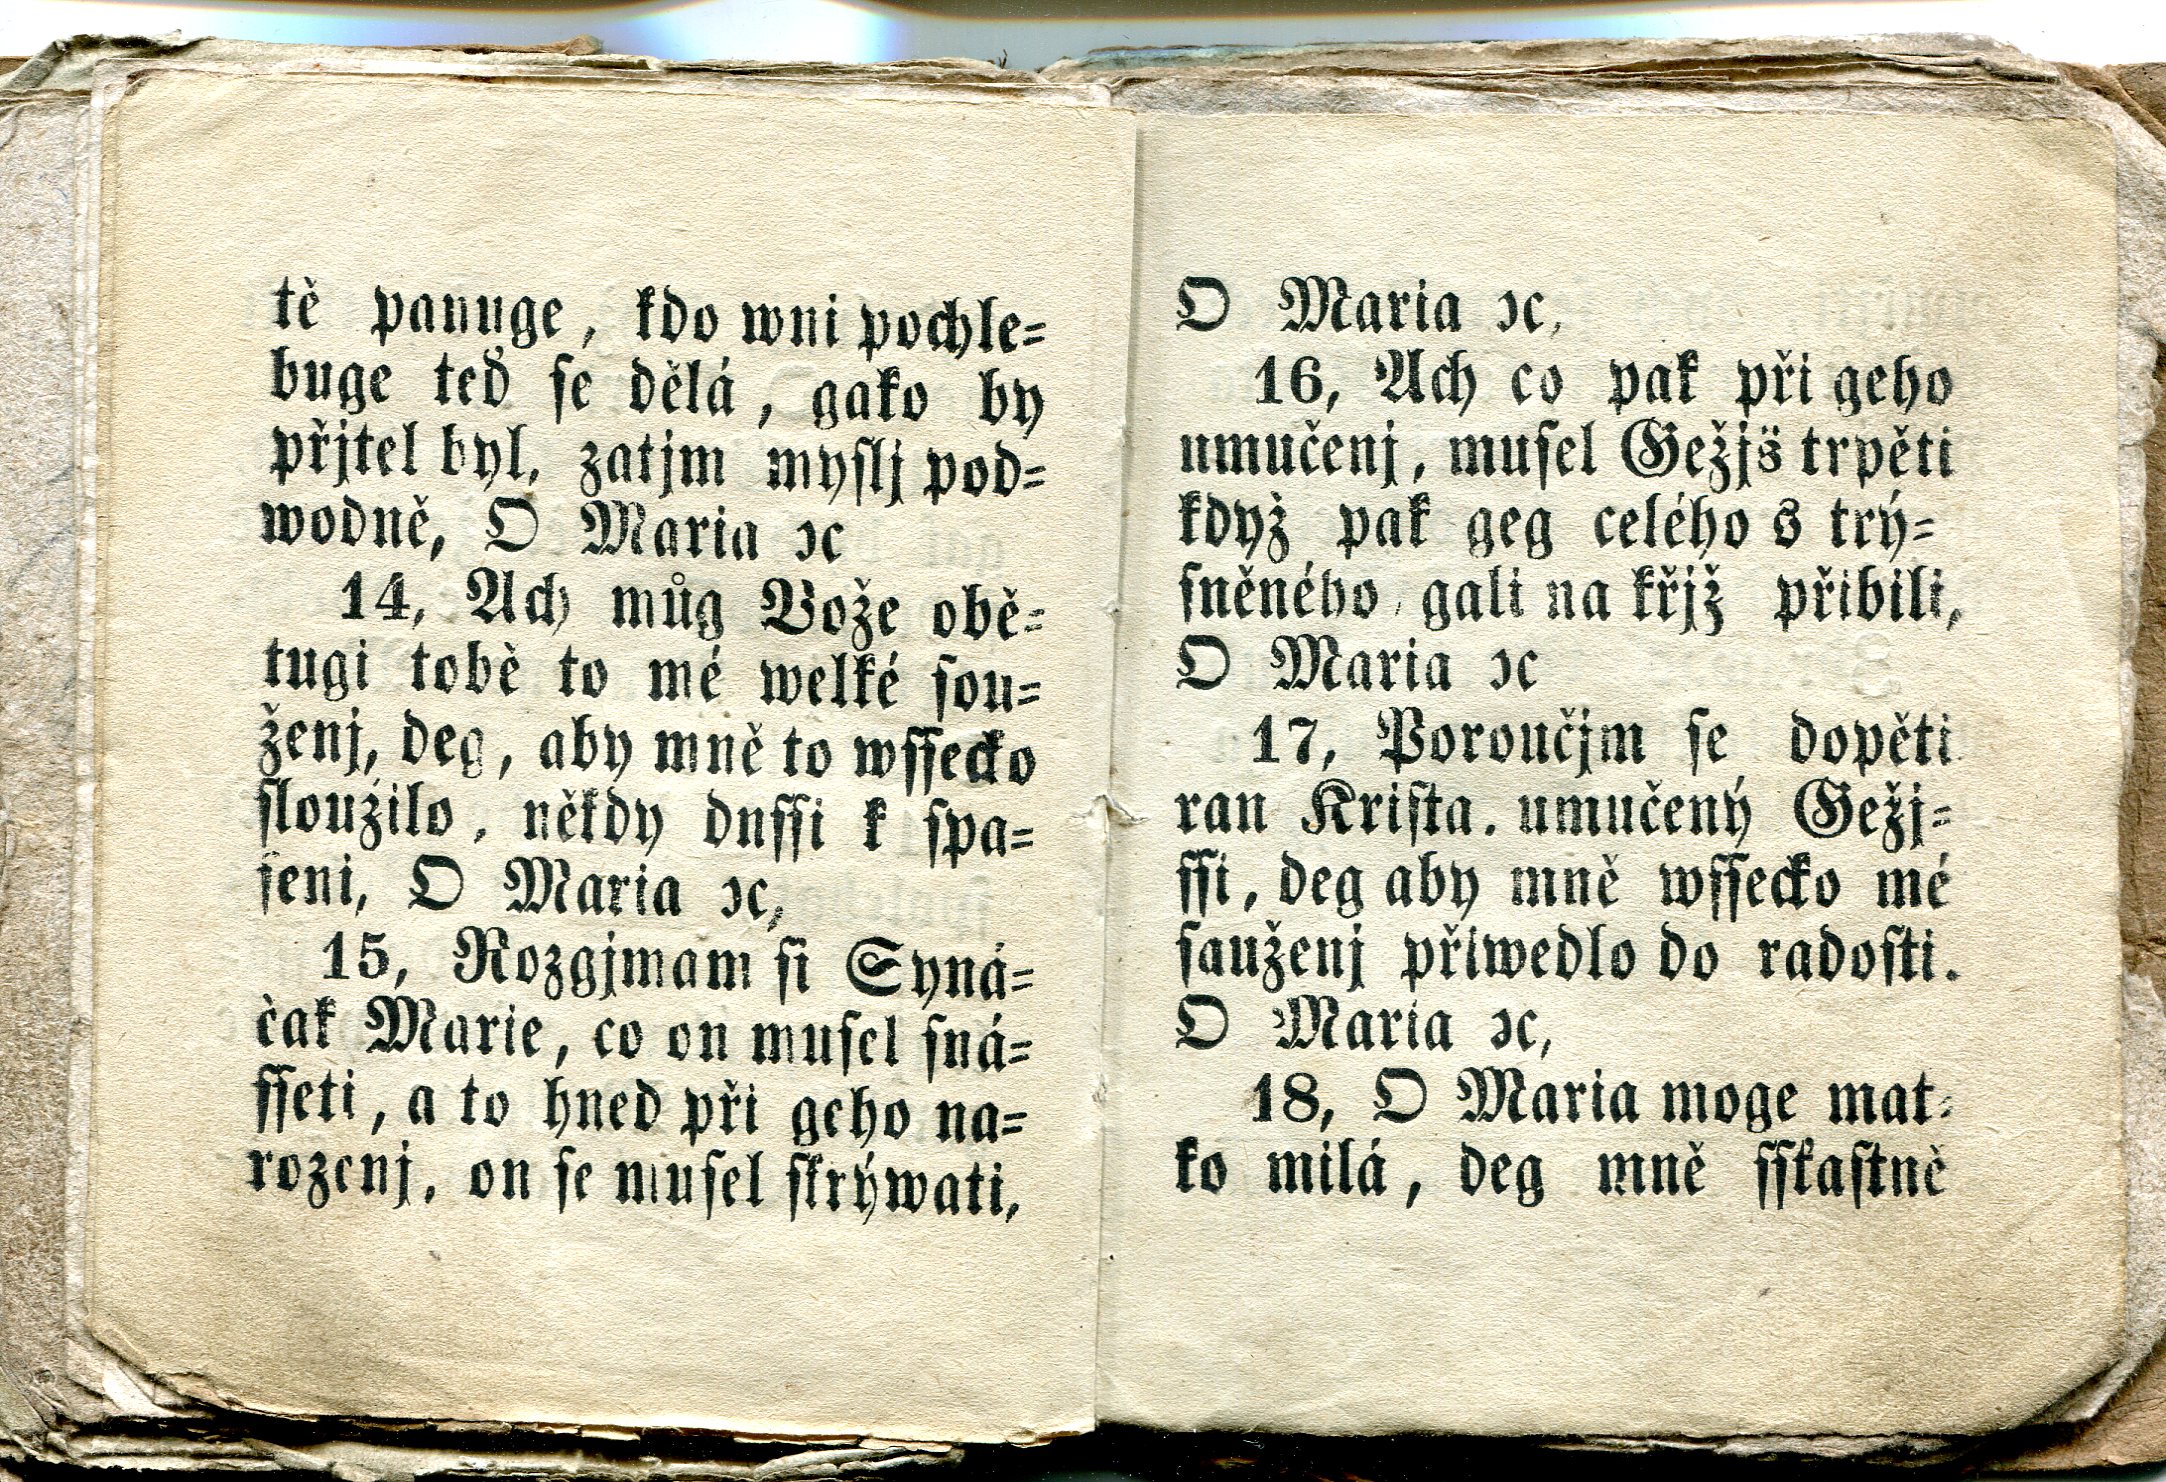 tě panuge, kdo wni pochle=
buge teď se dělá, gako by
přjtel byl, zatjm myslj pod=
wodně, O Maria ꝛc
14, Ach můg Bože obě=
tugi tobě to mé welké sou=
ženj, deg, aby mně to wssecko
sloužilo, někdy dussi k spa=
seni, O Maria ꝛc,
15, Rozgjmam si Syná=
čak Marie, co on musel sná=
sseti, a to hned při geho na=
rozenj, on se musel skrýwati,
O Maria ꝛc,
16, Ach co pak při geho
umučenj, musel Gežjs trpěti
když pak geg celého s trý=
sněného, gali na křjž přibili,
O Maria ꝛc
17, Poroučjm se dopěti
ran Krista. umučený Gežj=
ssi, deg aby mně wssecko mé
sauženj přiwedlo do radosti.
O Maria ꝛc,
18, O Maria moge mat=
ko milá, deg mně sskastně